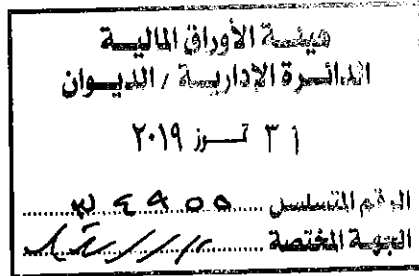 هيئة الأوراق المالية
الدائرة الإدارية / الديوان
٣١ تموز ٢٠١٩
الرقم المتسلسل
الجهة المختصة